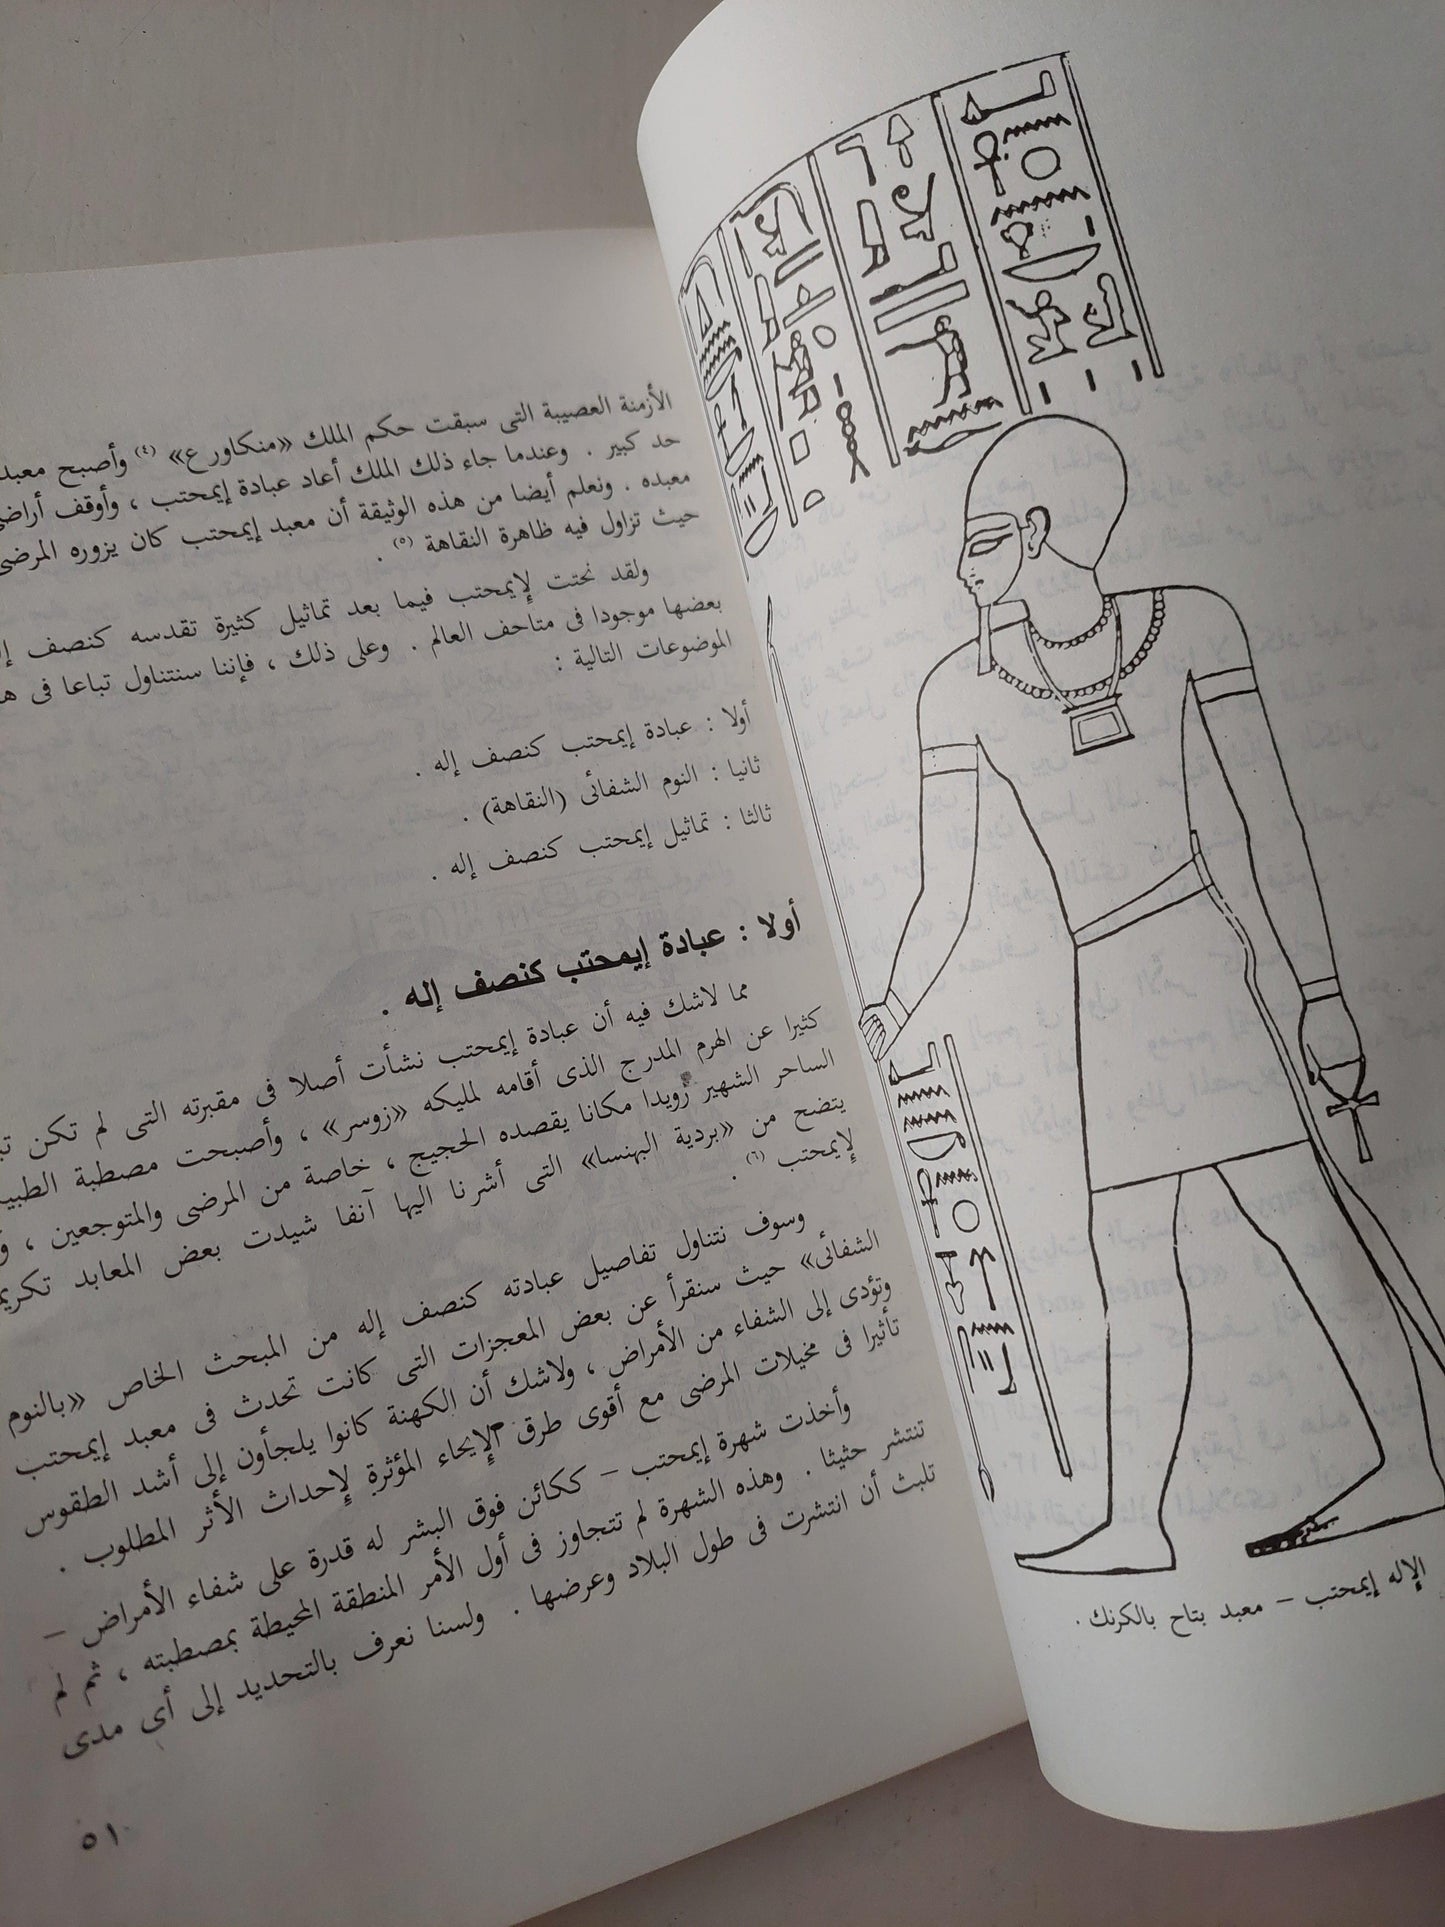 الأزمنة العصيبة التى سبقت حكم الملك «منكاورع» (٤) وأصبح معبد
حد كبير . وعندما جاء ذلك الملك أعاد عبادة إيمحتب ، وأوقف
معبده . ونعلم أيضا من هذه الوثيقة أن معبد إيمحتب كان يزوره المرضى
حيث تزاول فيه ظاهرة النقاهة (٥) .
ولقد نحتت لإيمحتب فيما بعد تماثيل كثيرة تقدسه كنصف
بعضها موجودا فى متاحف العالم . وعلى ذلك ، فإننا سنتناول تباعا فى
الموضوعات التالية :
أولا : عبادة إيمحتب كنصف إله .
ثانيا : النوم الشفائى (النقاهة) .
ثالثا : تماثيل إيمحتب كنصف إله .
أولا : عبادة إيمحتب كنصف إله .
مما لاشك فيه أن عبادة إيمحتب نشأت أصلا فى مقبرته التى لم تكن
كثيرا عن الهرم المدرج الذى أقامه لمليكه «زوسر» ، وأصبحت مصطبة
الساحر الشهير رويدا مكانا يقصده الحجيج ، خاصة من المرضى والمتوجعين ،
يتضح من «بردية البهنسا» التى أشرنا اليها آنفا شيدت بعض المعابد
لإيمحتب (٦) .
وسوف نتناول تفاصيل عبادته كنصف إله من المبحث الخاص «بالنوم
الشفائى» حيث سنقرأ عن بعض المعجزات التى كانت تحدث فى معبد إيمحتب
وتؤدى إلى الشفاء من الأمراض ، ولاشك أن الكهنة كانوا يلجأون إلى أشد الطقوس
تأثيرا فى مخيلات المرضى مع أقوى طرق الإيحاء المؤثرة لإحداث الأثر المطلوب .
وأخذت شهرة إيمحتب – ككائن فوق البشر له قدرة على شفاء الأمراض –
تنتشر حثيثا . وهذه الشهرة لم تتجاوز فى أول الأمر المنطقة المحيطة بمصطبته ، ثم لم
تلبث أن انتشرت فى طول البلاد وعرضها . ولسنا نعرف بالتحديد إلى أى مدى
٥١
الإله إيمحتب – معبد بتاح بالكرنك .